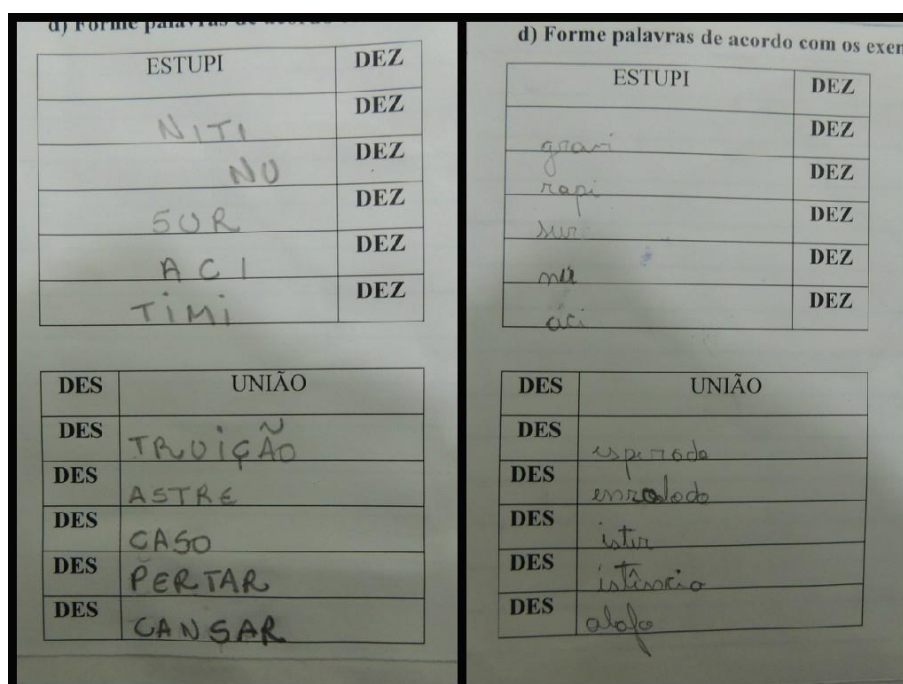 d) Forme palavras de acordo
ESTUPI DEZ
NITI DEZ
NU DEZ
SUR DEZ
ACI DEZ
TIMI DEZ
DES UNIÃO
DES TRUIÇÃO
DES ASTRE
DES CASO
DES PERTAR
DES CANSAR
d) Forme palavras de acordo com os exem
ESTUPI DEZ
gravi DEZ
rapi DEZ
sur DEZ
nu DEZ
aci DEZ
DES UNIÃO
DES esperado
DES enrolado
DES istir
DES istência
DES abafo